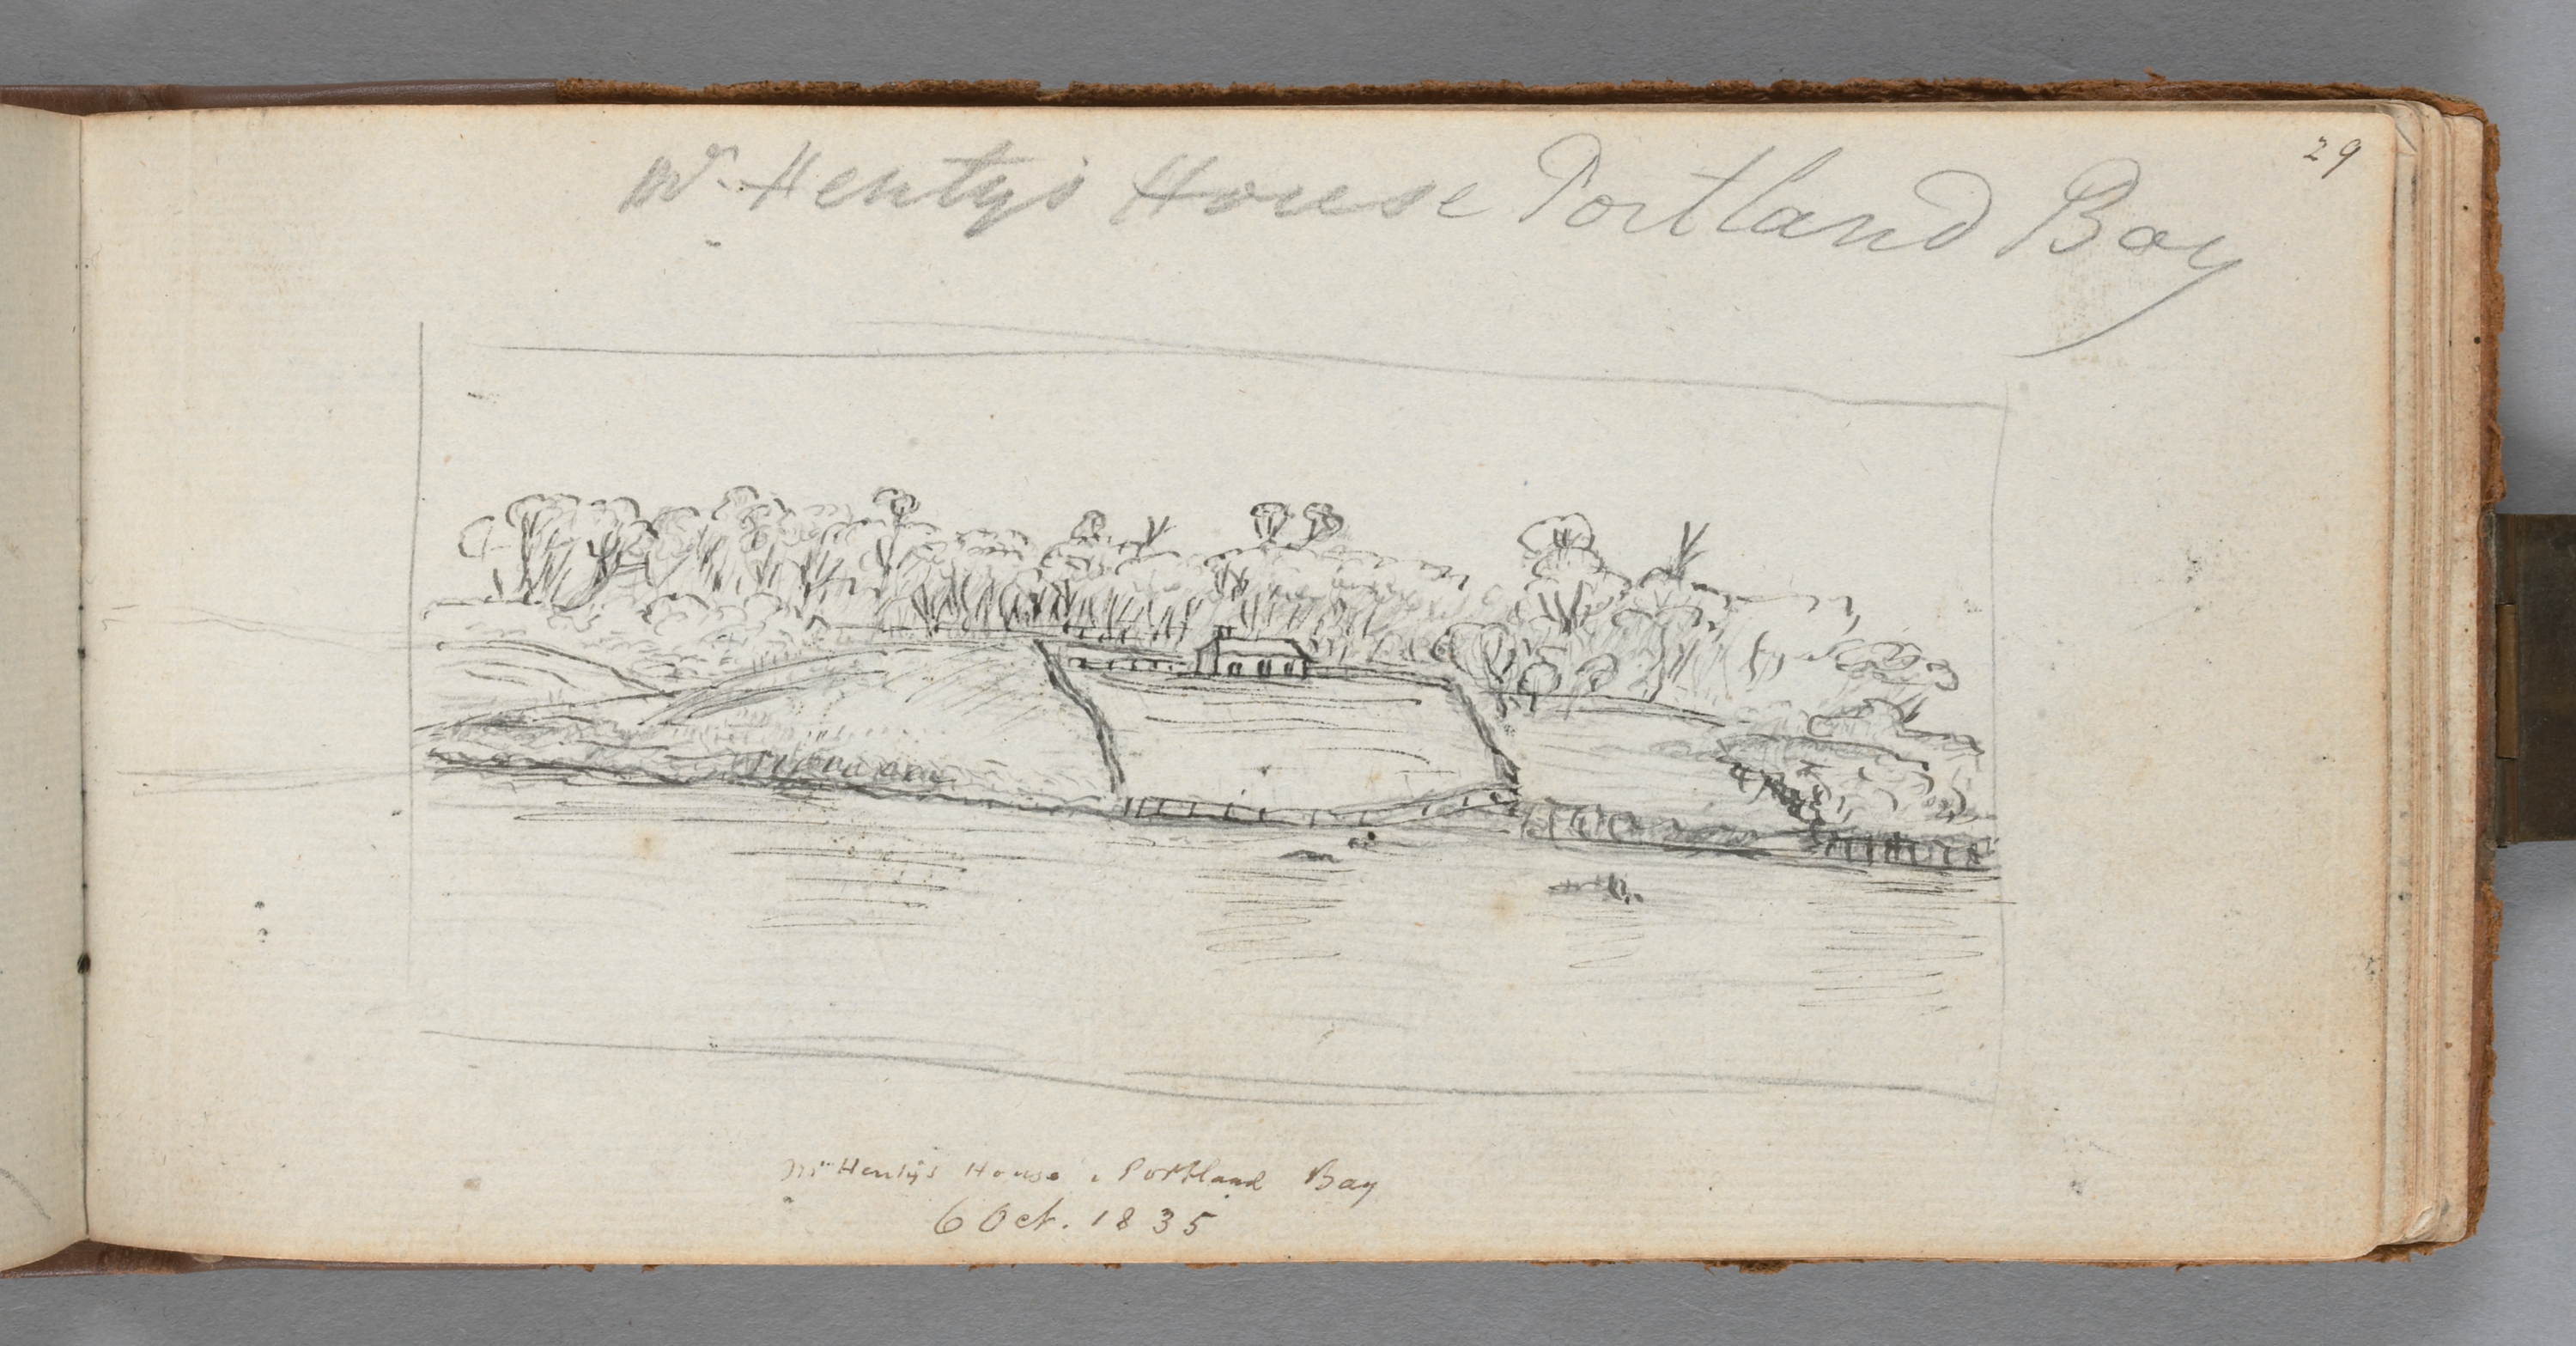 29
Mr. Hentys House Portland Bay
Mr Hentys House . Portland Bay
6 Oct. 1835